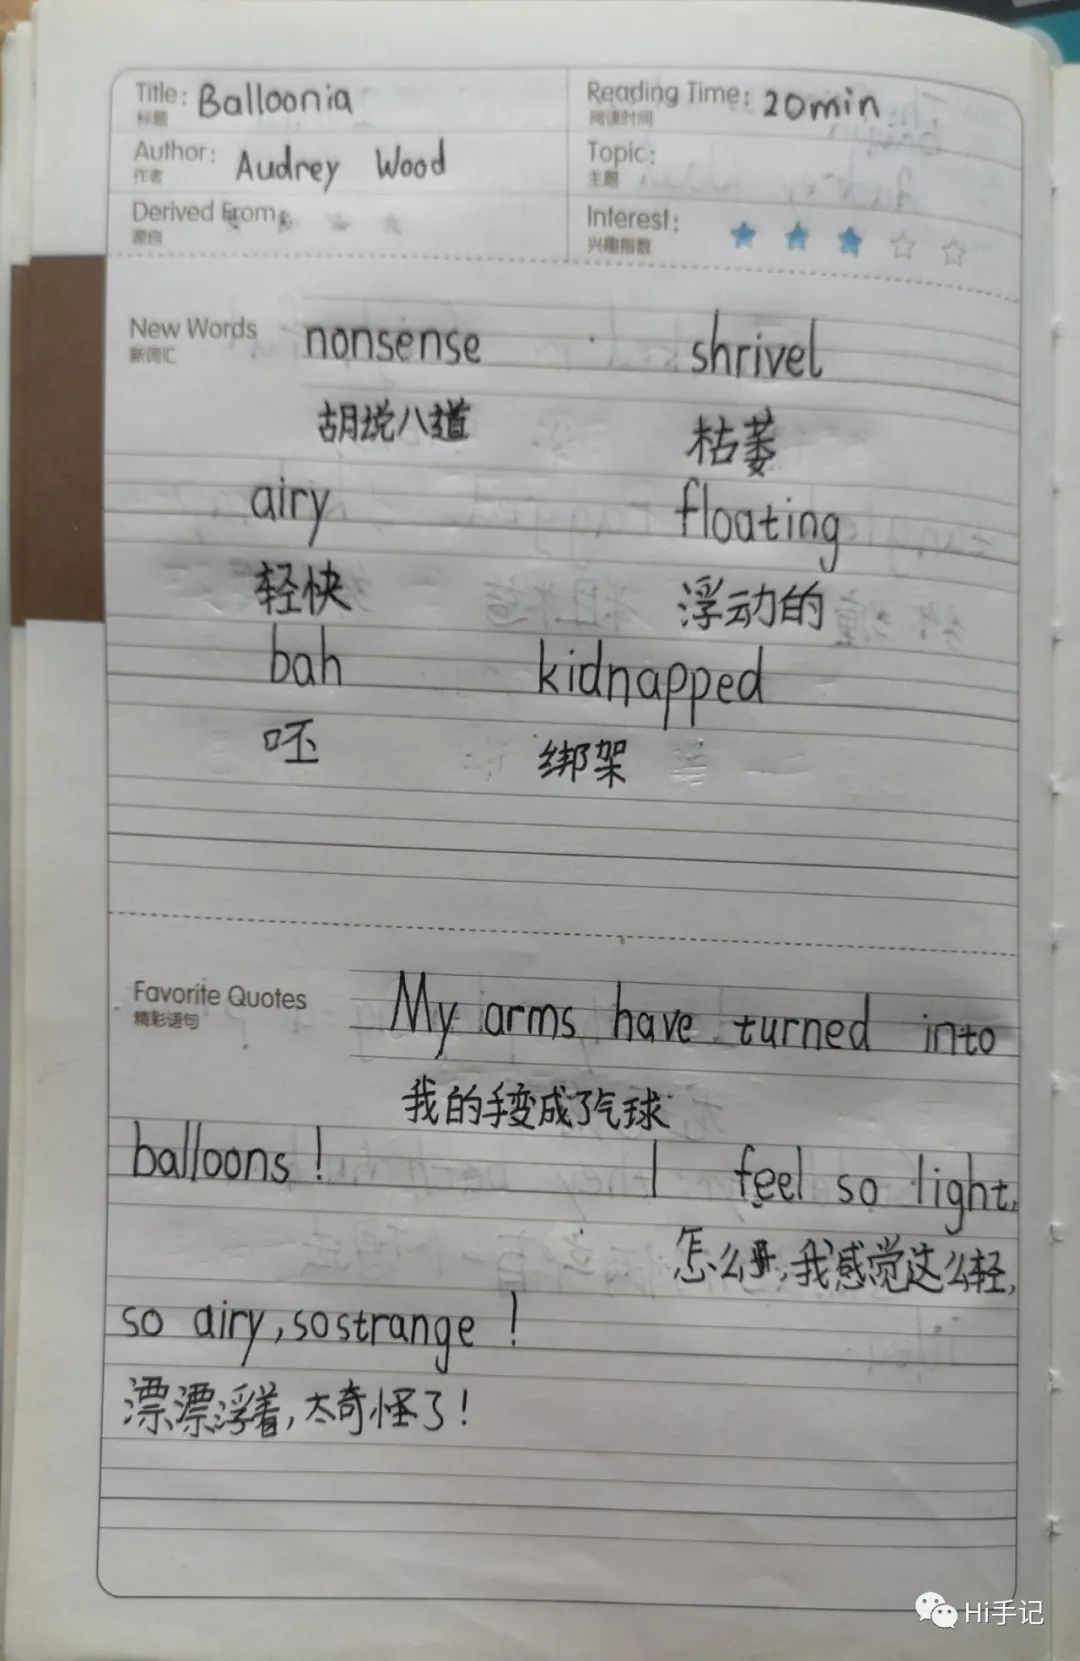 Title: Balloonia
标题
Reading Time: 20min
阅读时间
Author: Audrey Wood
作者
Topic:
主题
Derived From:
源自
Interest:
兴趣指数
New Words nonsense shrivel
新词汇
胡说八道 枯萎
airy floating
轻快 浮动的
bah kidnapped
呸 绑架
Favorite Quotes My arms have turned into
精彩语句
我的手变成了气球
balloons! I feel so light,
怎么 ,我感觉这么轻,
so airy, so strange!
漂漂浮着,太奇怪了!
Hi手记